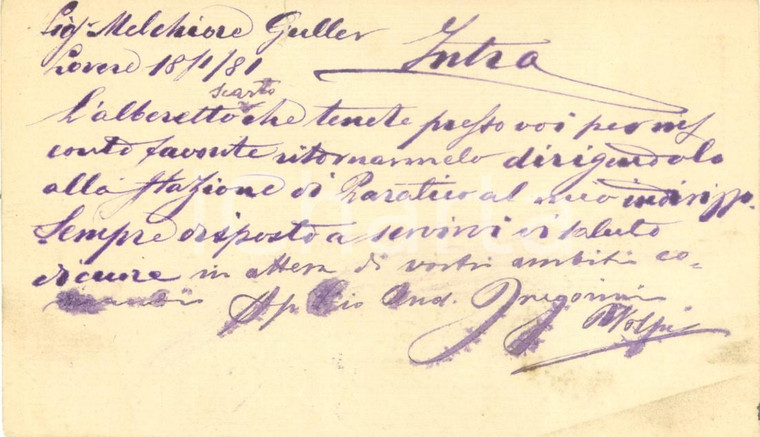 Sig. Melchiore Guller Intra
Lovere 18/1/81
scarto
L'alberetto che tenete presso voi per mis
conto favorite ritornarmelo dirigendolo
alla Stazione di Paratico al mio indirizzo.
Sempre disposto a servirvi vi saluto
di cuore in attesa di vostri ambiti co-
mandi Gio And. Gregorini
Volpi